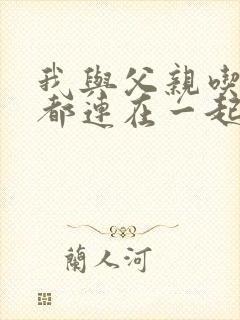 我與父親喫
都連在一起
蘭人河